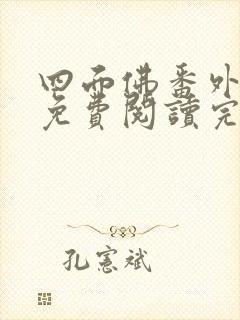 四面佛番外
免費閱讀完
孔憲斌